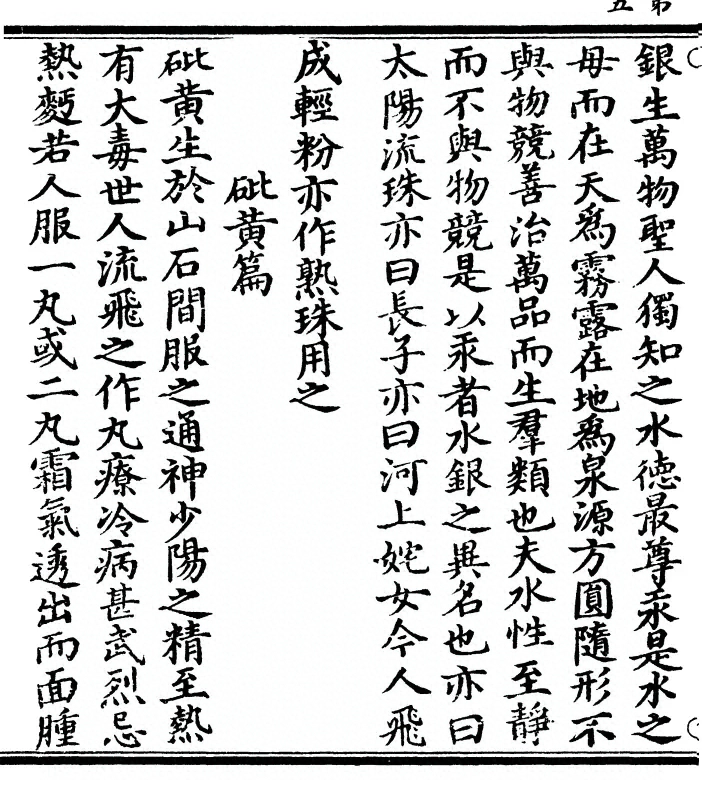 第五
銀生萬物聖人獨知之水德最尊汞是水之
母而在天爲霧露在地爲泉源方圓隨形不
與物競善治萬品而生羣類也夫水性至靜
而不與物競是以汞者水銀之異名也亦曰
太陽流珠亦曰長子亦曰河上姹女今人飛
成輕粉亦作熟珠用之
砒黃篇
砒黃生於山石間服之通神少陽之精至熱
有大毒世人流飛之作丸療冷病甚武烈忌
熱麪若人服一丸或二丸霜氣透出而面腫